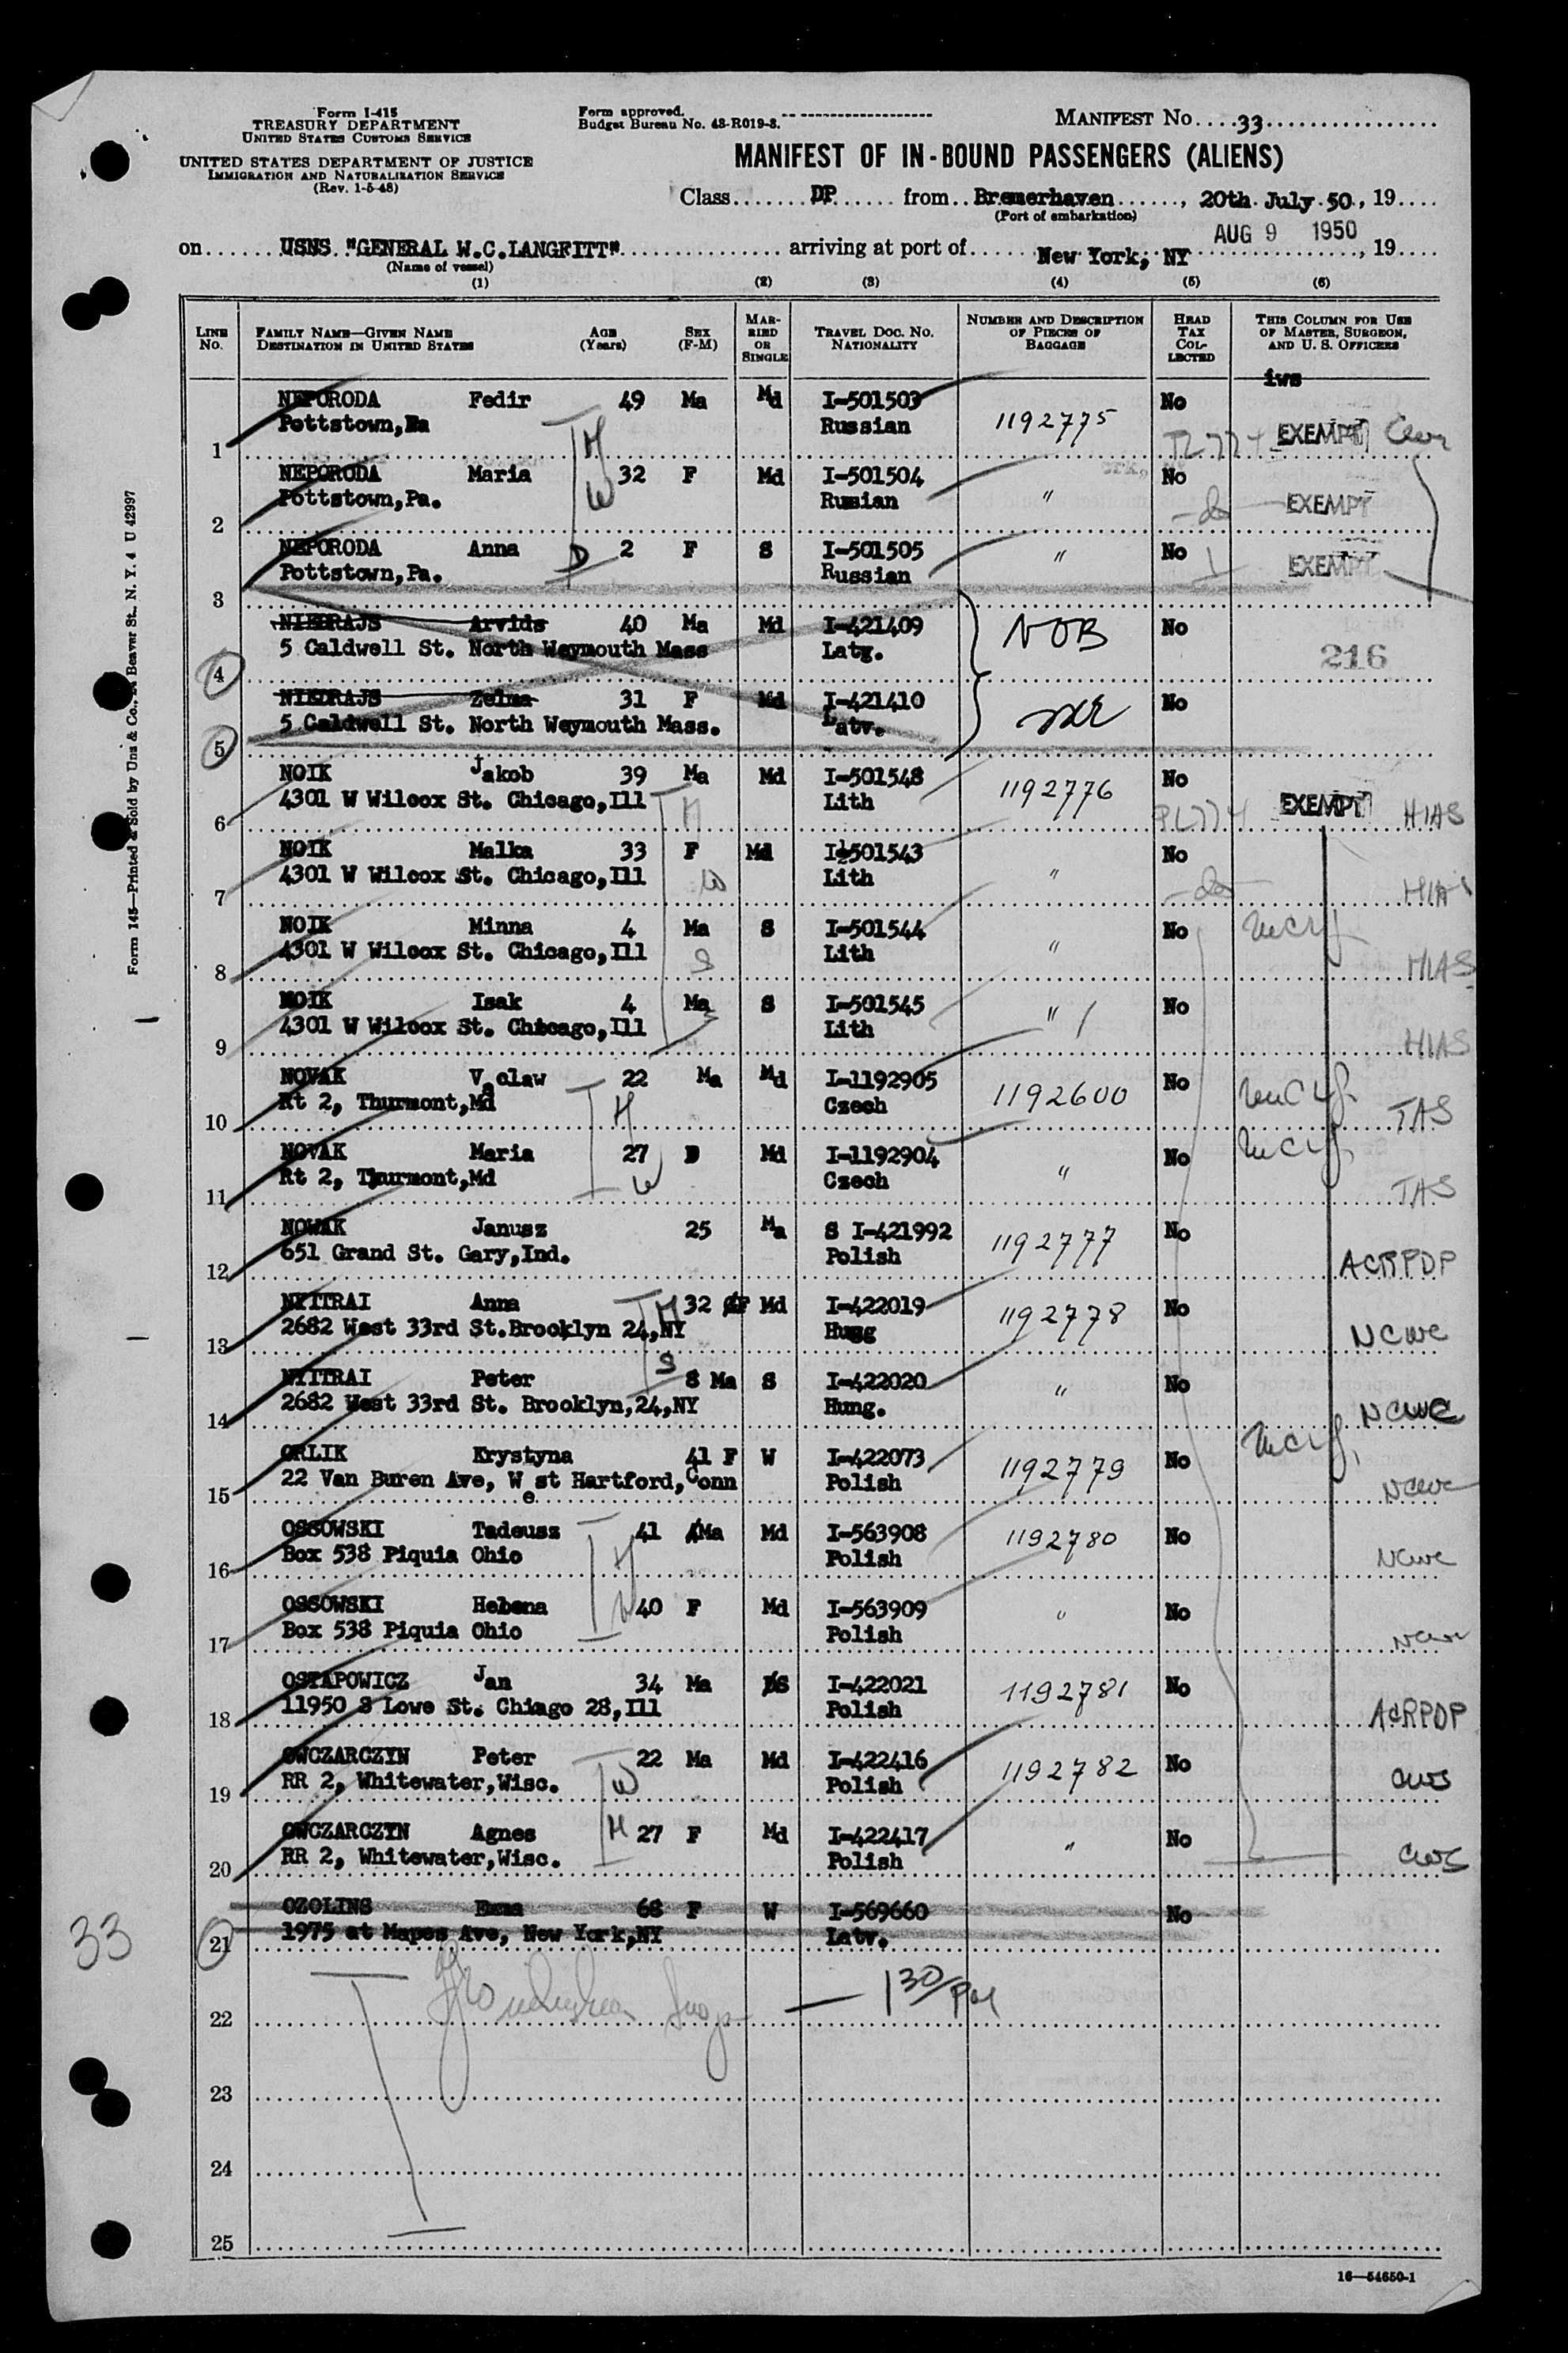 Form I-415
TREASURY DEPARTMENT
UNITED STATES CUSTOMS SERVICE
UNITED STATES DEPARTMENT OF JUSTICE
IMMIGRATION AND NATURALIZATION SERVICE
(Rev. 1-5-48)
Form approved.
Budget Bureau No. 43-R019-3.
MANIFEST NO....33
MANIFEST OF IN-BOUND PASSENGERS (ALIENS)
Class DP from Bremerhaven, 20th July 50, 19
(Port of embarkation)
AUG 9 1950
on USNS "GENERAL W.C.LANGFITT" arriving at port of New York, NY, 19
(Name of vessel)
(1) (2) (3) (4) (5) (6)
LINE NO. FAMILY NAME—GIVEN NAME DESTINATION IN UNITED STATES AGE (Years) SEX (F-M) MARRIED OR SINGLE TRAVEL DOC. NO. NATIONALITY NUMBER AND DESCRIPTION OF PIECES OF BAGGAGE HEAD TAX COLLECTED THIS COLUMN FOR USE OF MASTER, SURGEON, AND U. S. OFFICERS
iws
NEPORODA Fedir 49 Ma Md I-501503 1192775 No
1 Pottstown, Russian EXEMPT
NEPORODA Maria 32 F Md I-501504 " No
2 Pottstown,Pa. Russian EXEMPT
NEPORODA Anna 2 F S I-501505 " No
3 Pottstown,Pa. Russian EXEMPT
NIEDRAJS Arvids 40 Ma Md I-421409 NOB No
4 5 Caldwell St. North Weymouth Mass Latg. 216
NIEDRAJS Zelma 31 F Md I-421410 No
5 5 Caldwell St. North Weymouth Mass. Latv.
NOIK Jakob 39 Ma Md I-501548 1192776 No
6 4301 W Wilcox St. Chicago,Ill Lith PL774 EXEMPT HIAS
NOIK Malka 33 F Md I-501543 " No
7 4301 W Wilcox St. Chicago,Ill Lith HIAS
NOIK Minna 4 Ma S I-501544 " No
8 4301 W Wilcox St. Chicago,Ill Lith HIAS
NOIK Isak 4 Ma S I-501545 " No
9 4301 W Wilcox St. Chicago,Ill Lith HIAS
NOVAK Vaclaw 22 Ma Md I-1192905 1192600 No
10 Rt 2, Thurmont,Md Czech TAS
NOVAK Maria 27 D Md I-1192904 " No
11 Rt 2, Thurmont,Md Czech TAS
NOWAK Janusz 25 Ma S I-421992 1192777 No
12 651 Grand St. Gary,Ind. Polish ACRPDP
NYITRAI Anna 32 F Md I-422019 1192778 No
13 2682 West 33rd St.Brooklyn 24,NY Hung NCWC
NYITRAI Peter 8 Ma S I-422020 " No
14 2682 West 33rd St. Brooklyn,24,NY Hung. NCWC
ORLIK Krystyna 41 F W I-422073 1192779 No
15 22 Van Buren Ave, West Hartford,Conn Polish NCWC
OSSOWSKI Tadeusz 41 Ma Md I-563908 1192780 No
16 Box 538 Piquia Ohio Polish NCWC
OSSOWSKI Helena 40 F Md I-563909 " No
17 Box 538 Piquia Ohio Polish NCWC
OSTAPOWICZ Jan 34 Ma S I-422021 1192781 No
18 11950 S Lowe St. Chiago 28,Ill Polish ACRPDP
OWCZARCZYN Peter 22 Ma Md I-422416 1192782 No
19 RR 2, Whitewater,Wisc. Polish CWS
OWCZARCZYN Agnes 27 F Md I-422417 " No
20 RR 2, Whitewater,Wisc. Polish CWS
OZOLINS Emma 68 F W I-569660 No
21 1975 at Mapes Ave, New York,NY Latv.
33
22 — 1 30/PM
23
24
25
16—54650-1
Form 145—Printed & Sold by Unz & Co., Beaver St., N. Y. 4 U 42997